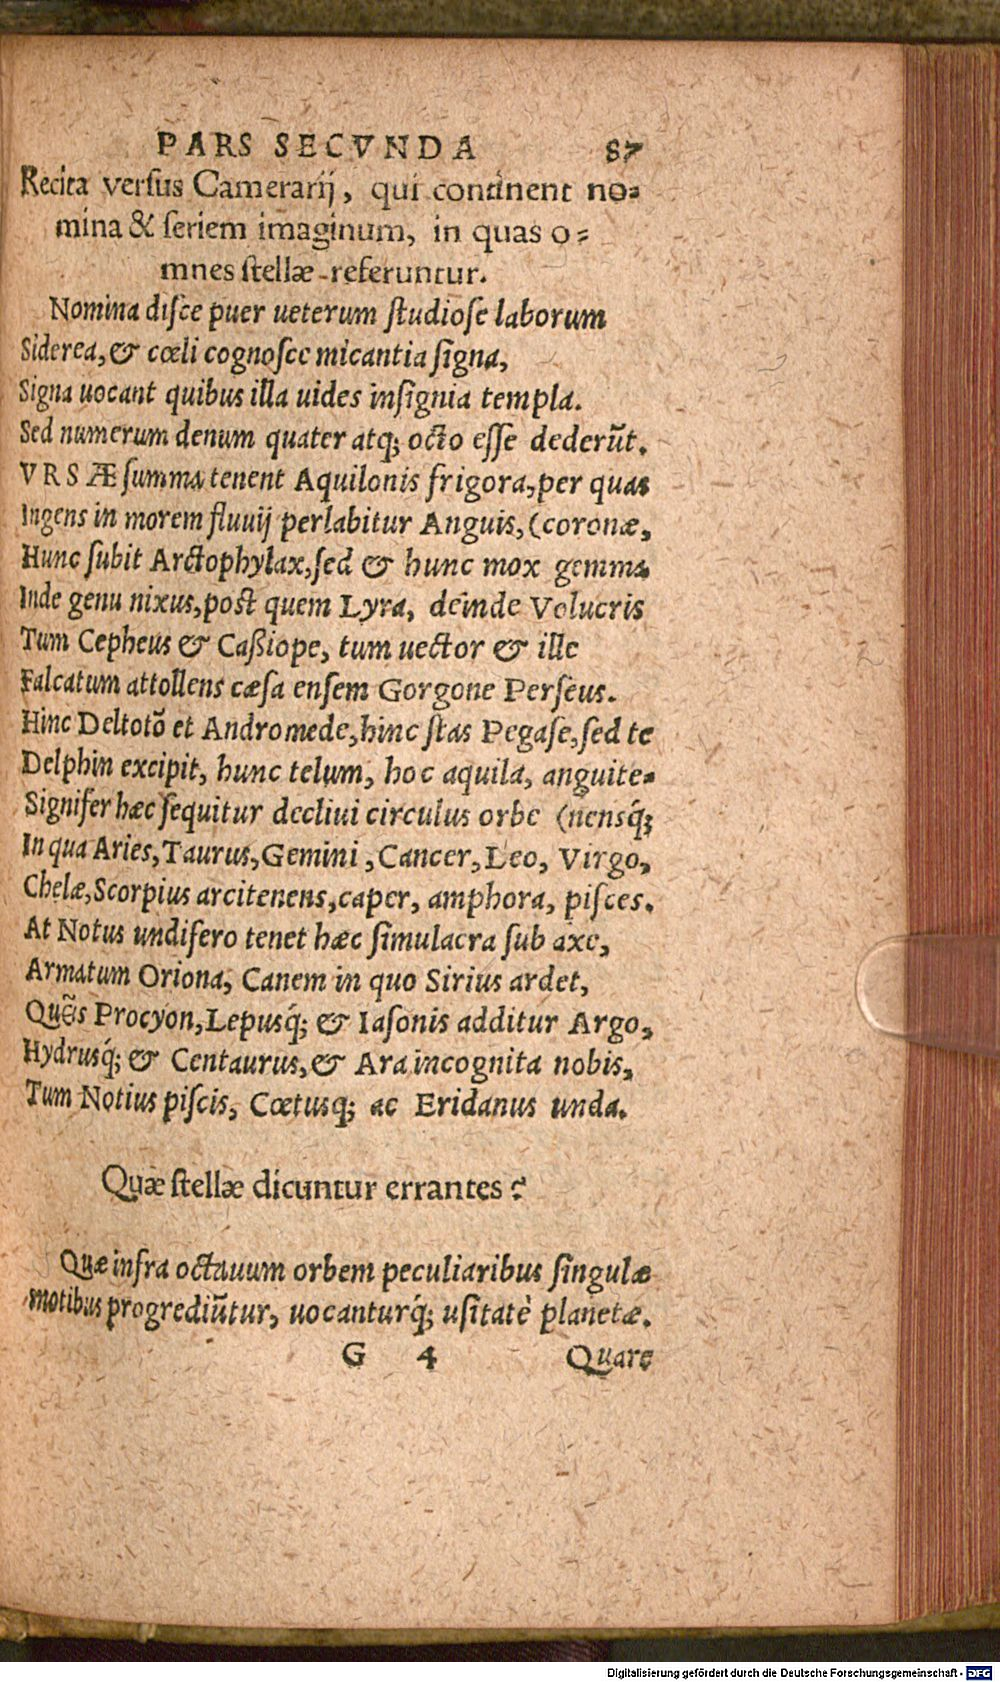 PARS SECVNDA 87
Recita versus Camerarij, qui continent no⸗
mina & ſeriem imaginum, in quas o⸗
mnes ſtellæ referuntur.
Nomina diſce puer ueterum ſtudioſe laborum
Siderea, & cœli cognoſce micantia ſigna,
Signa uocant quibus illa uides inſignia templa.
Sed numerum denum quater atq; octo eſſe dederũt.
VRSÆ ſumma tenent Aquilonis frigora, per quas
Ingens in morem fluuij perlabitur Anguis, (coronæ,
Hunc ſubit Arctophylax, ſed & hunc mox gemma
Inde genu nixus, poſt quem Lyra, deinde Volucris
Tum Cepheus & Caßiope, tum uector & ille
Falcatum attollens cæſa enſem Gorgone Perſeus.
Hinc Deltotõ et Andromede, hinc ſtas Pegaſe, ſed te
Delphin excipit, hunc telum, hoc aquila, anguite⸗
Signifer hæc ſequitur decliui circulus orbe (nensq́;
In qua Aries, Taurus, Gemini, Cancer, Leo, Virgo,
Chelæ, Scorpius arcitenens, caper, amphora, piſces.
At Notus undifero tenet hæc ſimulacra ſub axe,
Armatum Oriona, Canem in quo Sirius ardet,
Quẽis Procyon, Lepusq́; & Iaſonis additur Argo,
Hydrusq́; & Centaurus, & Ara incognita nobis,
Tum Notius piſcis, Cœtusq; ac Eridanus unda.
Quæ ſtellæ dicuntur errantes?
Quæ infra octauum orbem peculiaribus ſingulæ
motibus progrediũtur, uocanturq́; uſitatè planetæ.
G 4 Quare
Digitalisierung gefördert durch die Deutsche Forschungsgemeinschaft - DFG